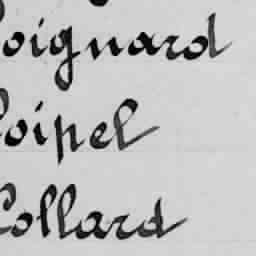 Coignard
Coipel
Collard